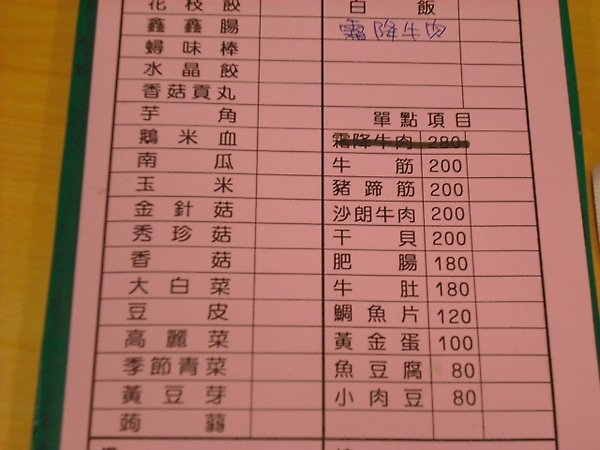 花枝餃
鑫鑫腸
蟳味棒
水晶餃
香菇貢丸
芋角
鵝米血
南瓜
玉米
金針菇
秀珍菇
香菇
大白菜
豆皮
高麗菜
季節青菜
黃豆芽
蒟蒻
白飯
霜降牛肉
單點項目
霜降牛肉 280
牛筋 200
豬蹄筋 200
沙朗牛肉 200
干貝 200
肥腸 180
牛肚 180
鯛魚片 120
黃金蛋 100
魚豆腐 80
小肉豆 80